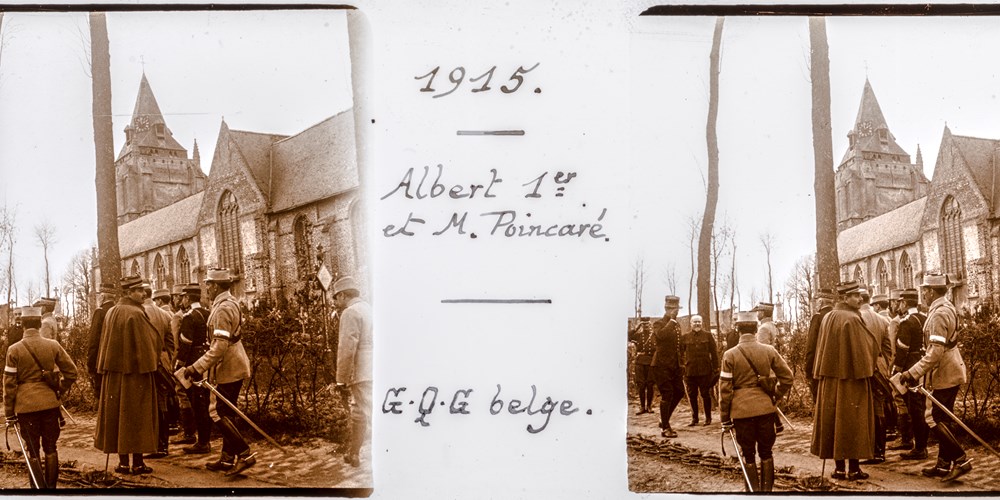 1915.
Albert 1er
et M. Poincaré.
G.Q.G belge.